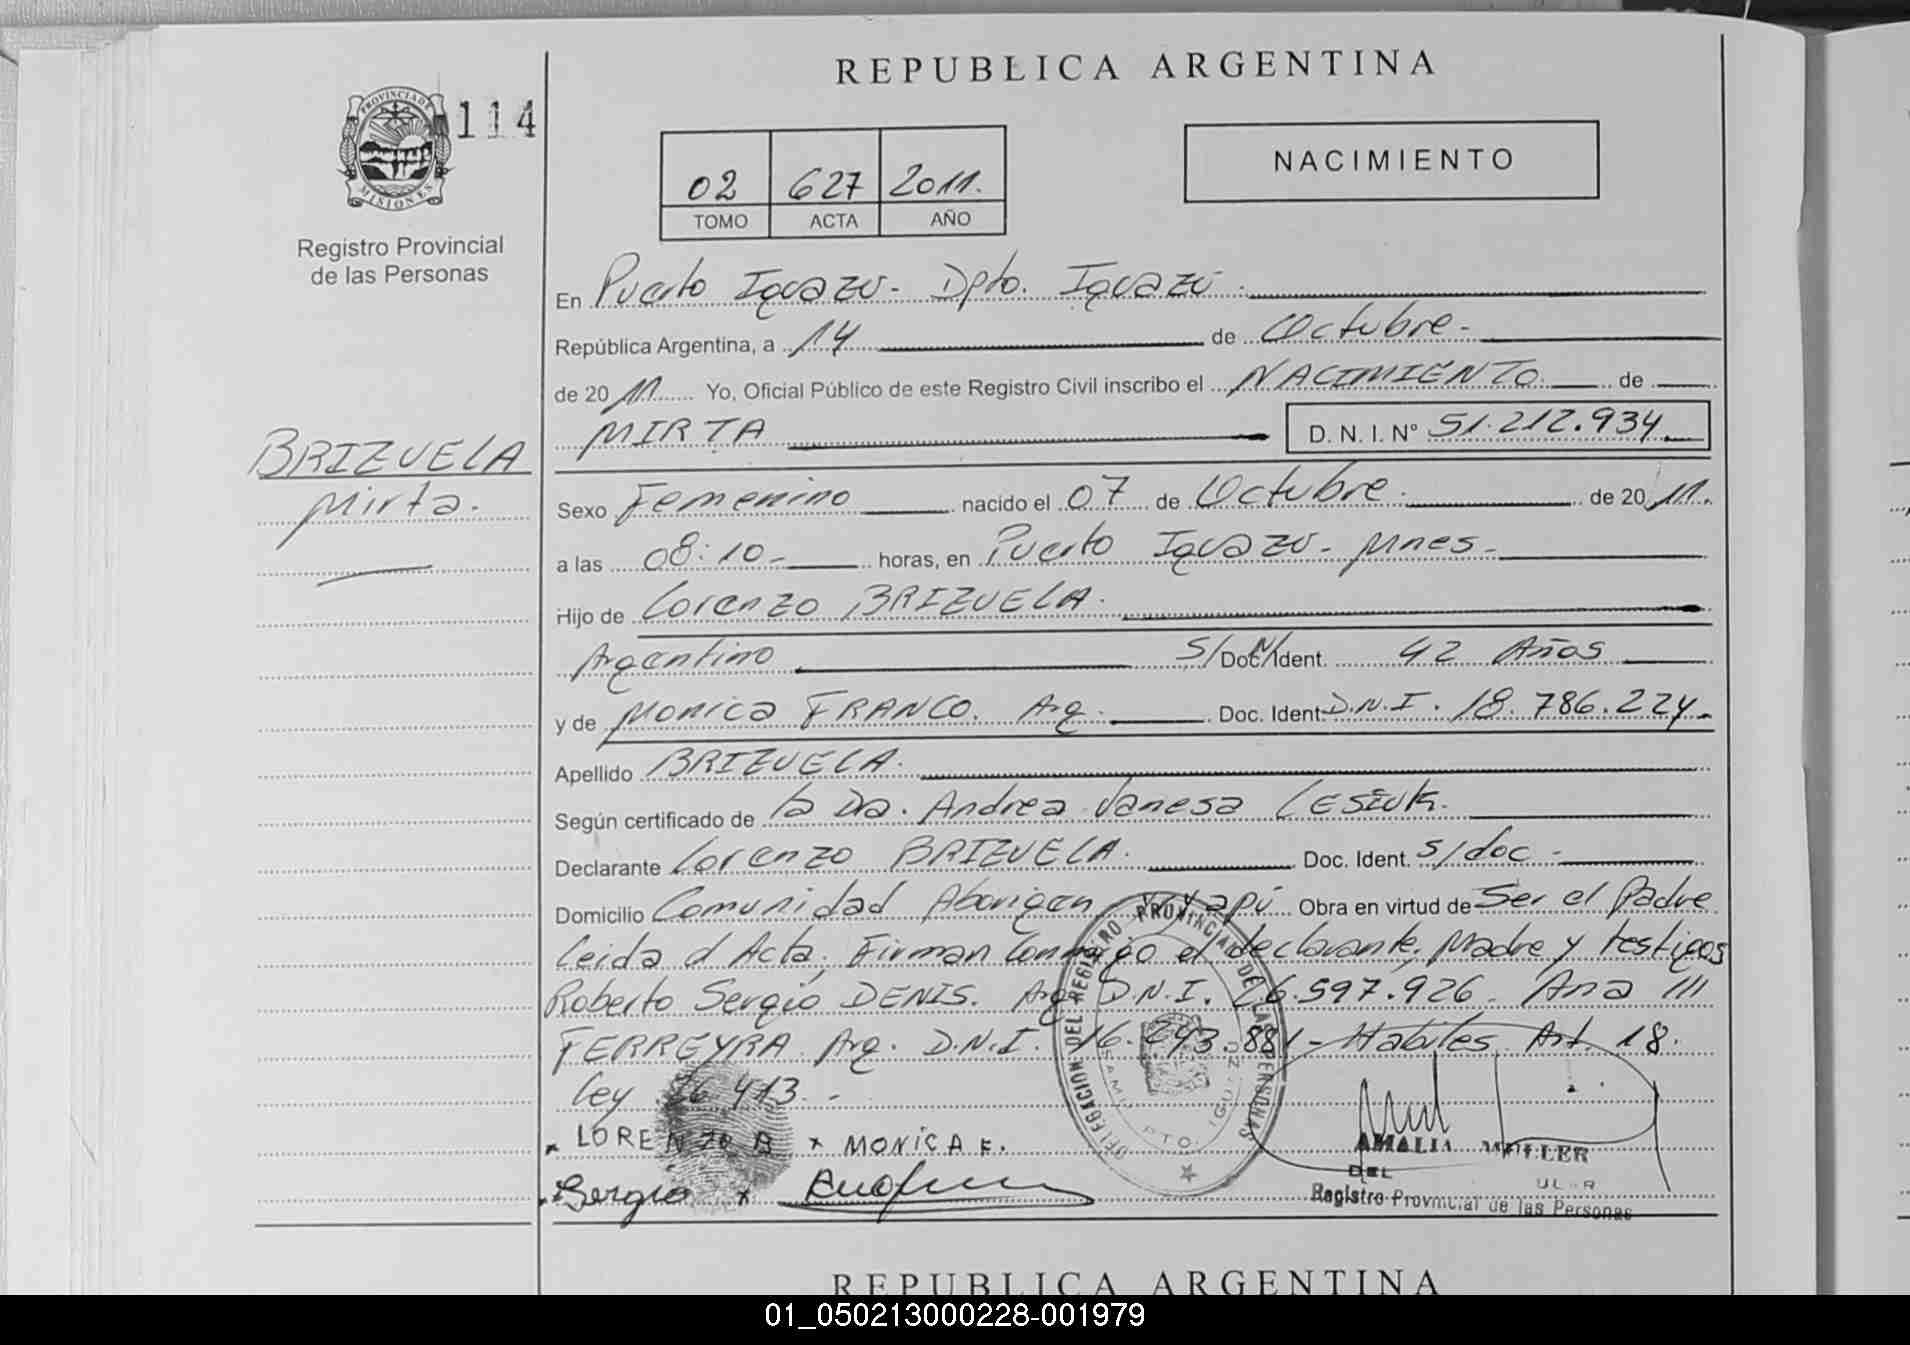 REPUBLICA ARGENTINA
PROVINCIA DE
MISIONES
114
Registro Provincial
de las Personas
02 627 2011.
TOMO ACTA AÑO
NACIMIENTO
En Puerto Iguazú - Dpto. Iguazú.
República Argentina, a 14 de Octubre -
de 20 11 Yo, Oficial Público de este Registro Civil inscribo el NACIMIENTO de
MIRTA D. N. I. N° 51.212.934
BRIZUELA
Mirta.
Sexo Femenino nacido el 07 de Octubre. de 20 11.
a las 08:10 - horas, en Puerto Iguazú - Mnes -
Hijo de Lorenzo BRIZUELA.
Argentino S/ Doc. N/ Ident. 42 Años
y de Monica FRANCO. Arg. Doc. Ident. D.N.I. 18.786.224 -
Apellido BRIZUELA.
Según certificado de la Dra. Andrea Vanesa LESIUK.
Declarante Lorenzo BRIZUELA. Doc. Ident. s/doc -
Domicilio Comunidad Aborigen Obra en virtud de Ser el Padre
Leida el Acta, Firman Conmigo el declarante, Madre y testigos
Roberto Sergio DENIS. Arg. D.N.I. 26.597.926. Ana
FERREYRA. Arg. D.N.I. 16.243.881 - Habiles Art. 18.
Ley 26.413. -
DELEGACION DEL REGISTRO PROVINCIAL DE LAS PERSONAS
x LORENZO B x MONICA F.
AMALIA MULLER
DEL
Registro Provincial de las Personas
Sergio x
REPUBLICA ARGENTINA
01_050213000228-001979